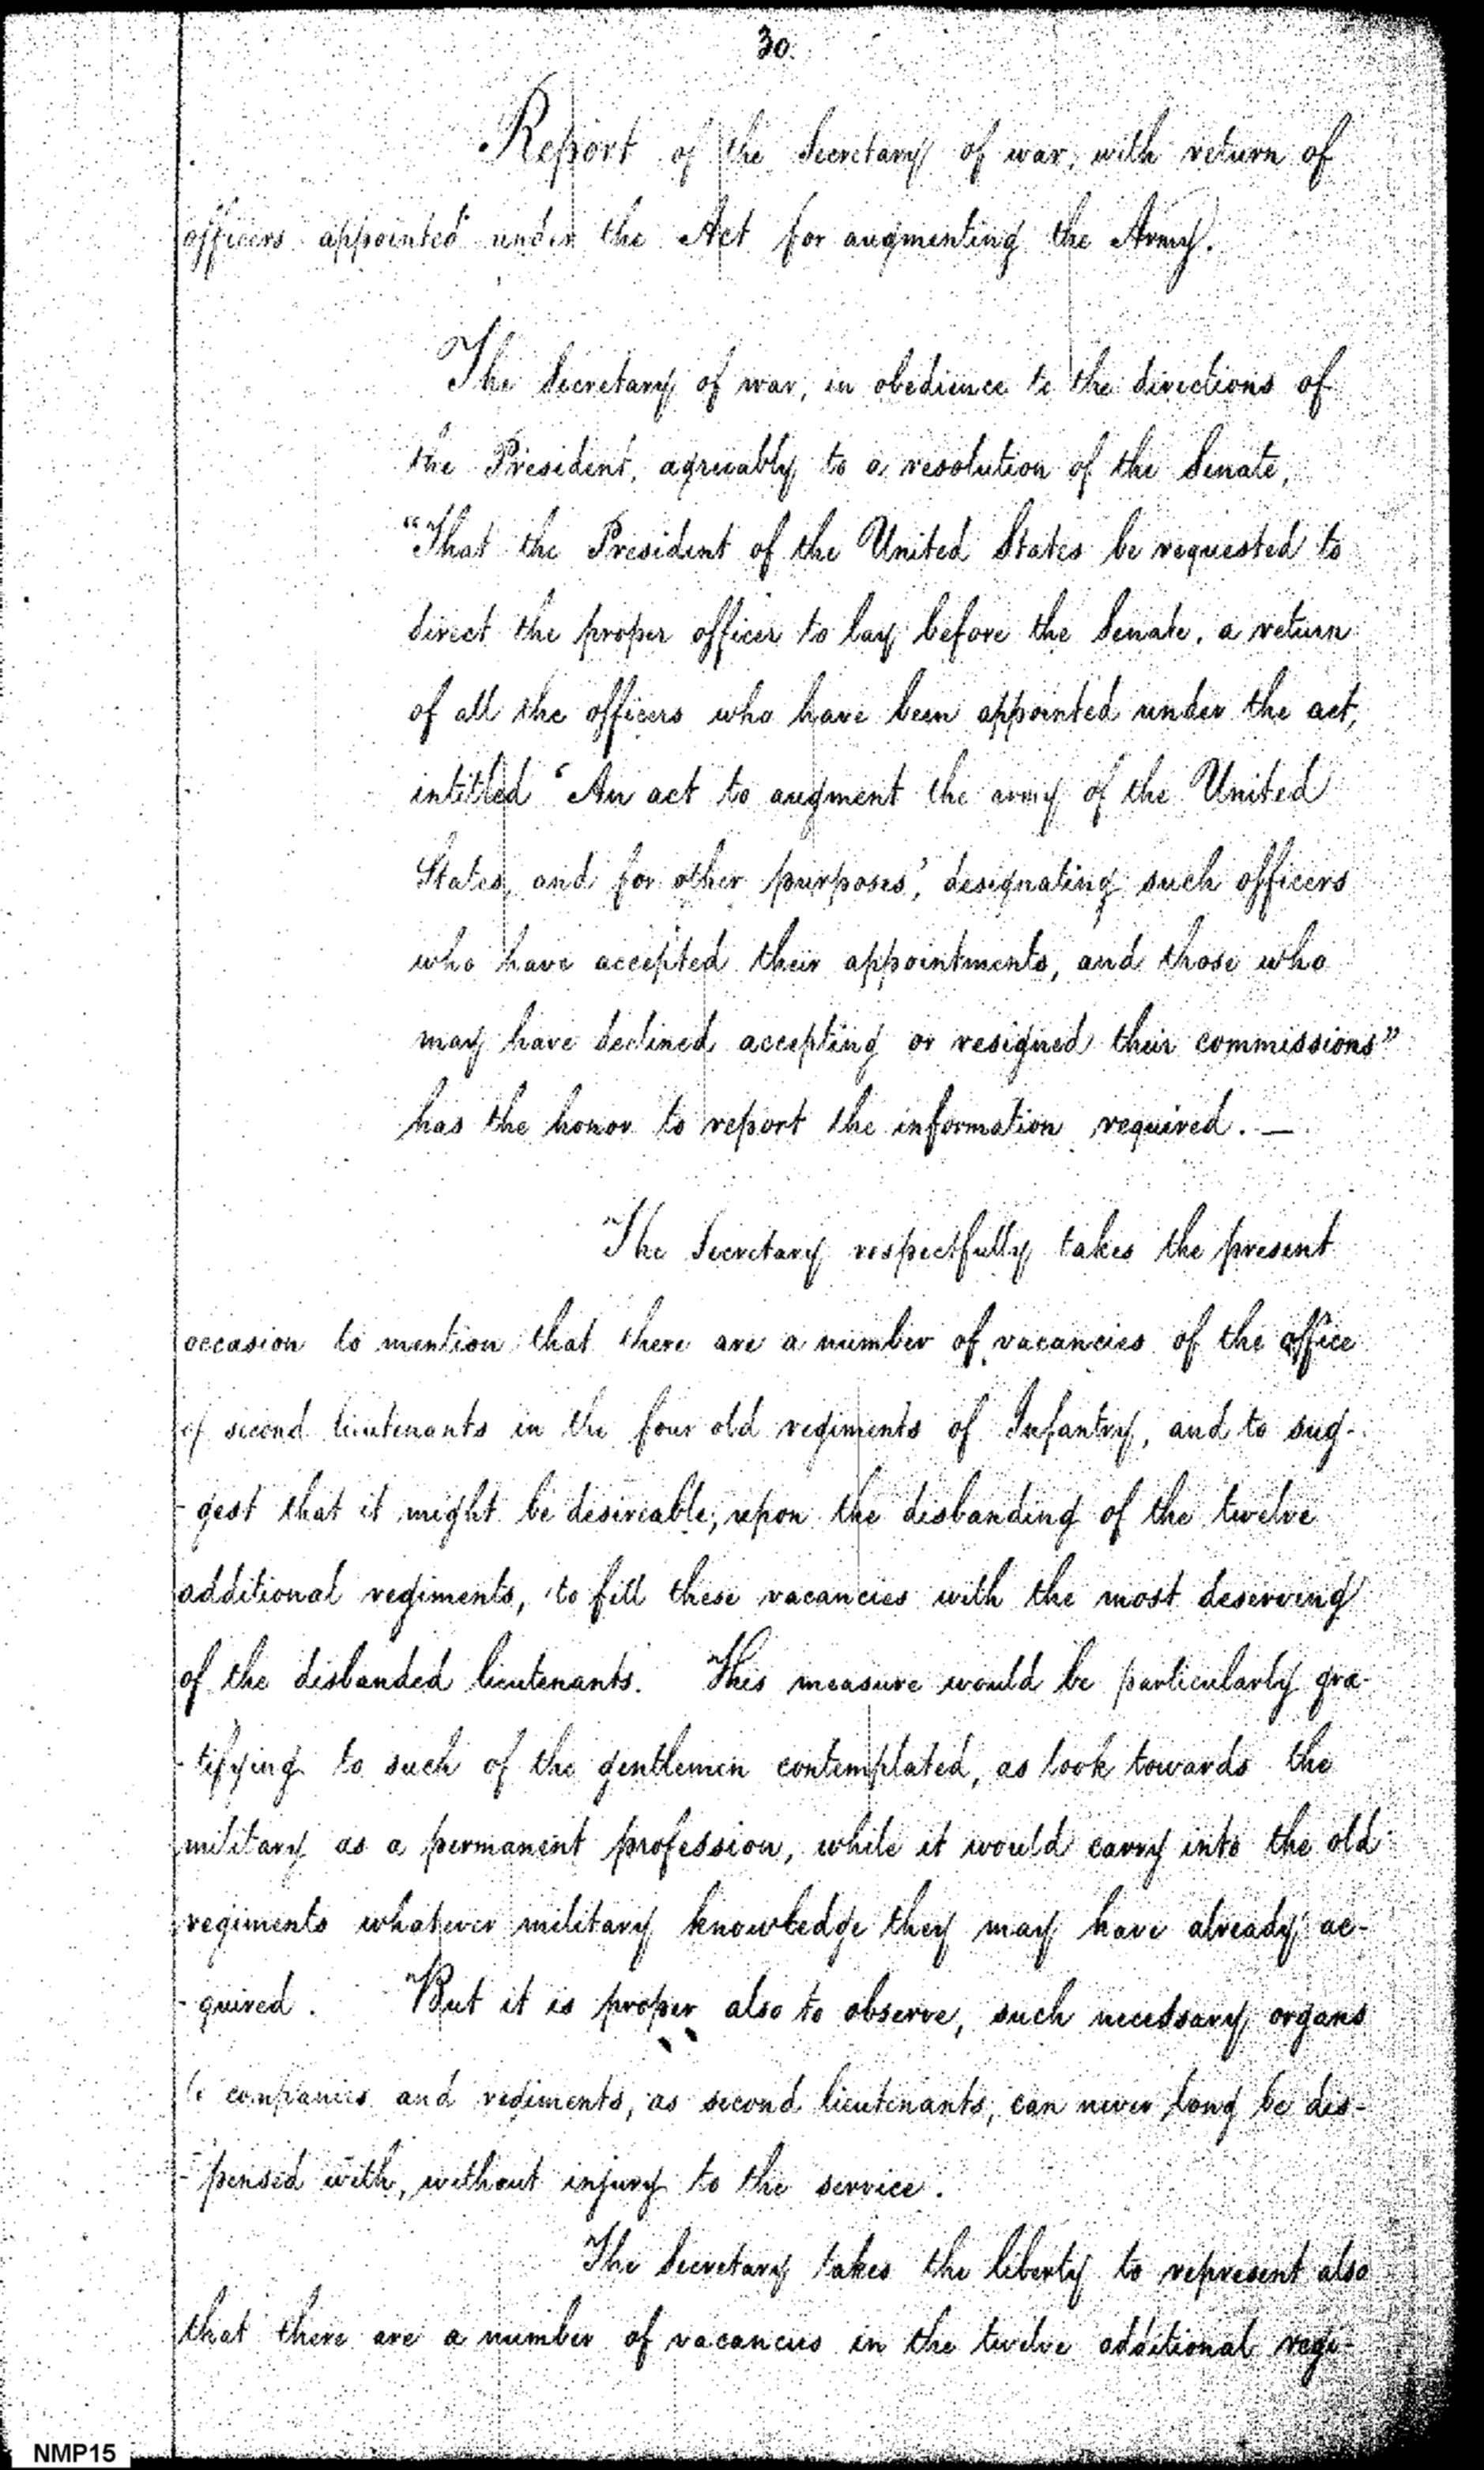 30.
Report of the Secretary of war, with return of
officers appointed under the Act for augmenting the Army.
The Secretary of war, in obedience to the directions of
the President, agreeably to a resolution of the Senate,
"That the President of the United States be requested to
direct the proper officer to lay before the Senate, a return
of all the officers who have been appointed under the act,
intitled 'An act to augment the army of the United
States, and for other purposes', designating such officers
who have accepted their appointments, and those who
may have declined accepting or resigned their commissions"
has the honor to report the information required. —
The Secretary respectfully takes the present
occasion to mention that there are a number of vacancies of the office
of second lieutenants in the four old regiments of Infantry, and to sug-
- gest that it might be desireable, upon the disbanding of the twelve
additional regiments, to fill these vacancies with the most deserving
of the disbanded lieutenants. This measure would be particularly gra-
- tifying to such of the gentlemen contemplated, as look towards the
military as a permanent profession, while it would carry into the old
regiments whatever military knowledge they may have already ac-
- quired. But it is proper also to observe, such necessary organs
to companies and regiments, as second lieutenants, can never long be dis-
- pensed with, without injury to the service.
The Secretary takes the liberty to represent also
that there are a number of vacancies in the twelve additional regi-
NMP15